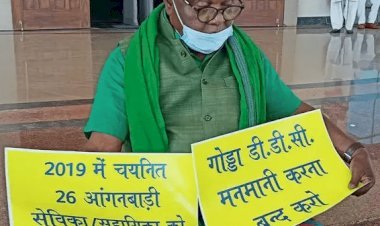 2019 में चयनित
26 आंगनबाड़ी
सेविका/सहायिका को
गोड्डा डी.डी.सी.
मनमानी करना
बन्द करो